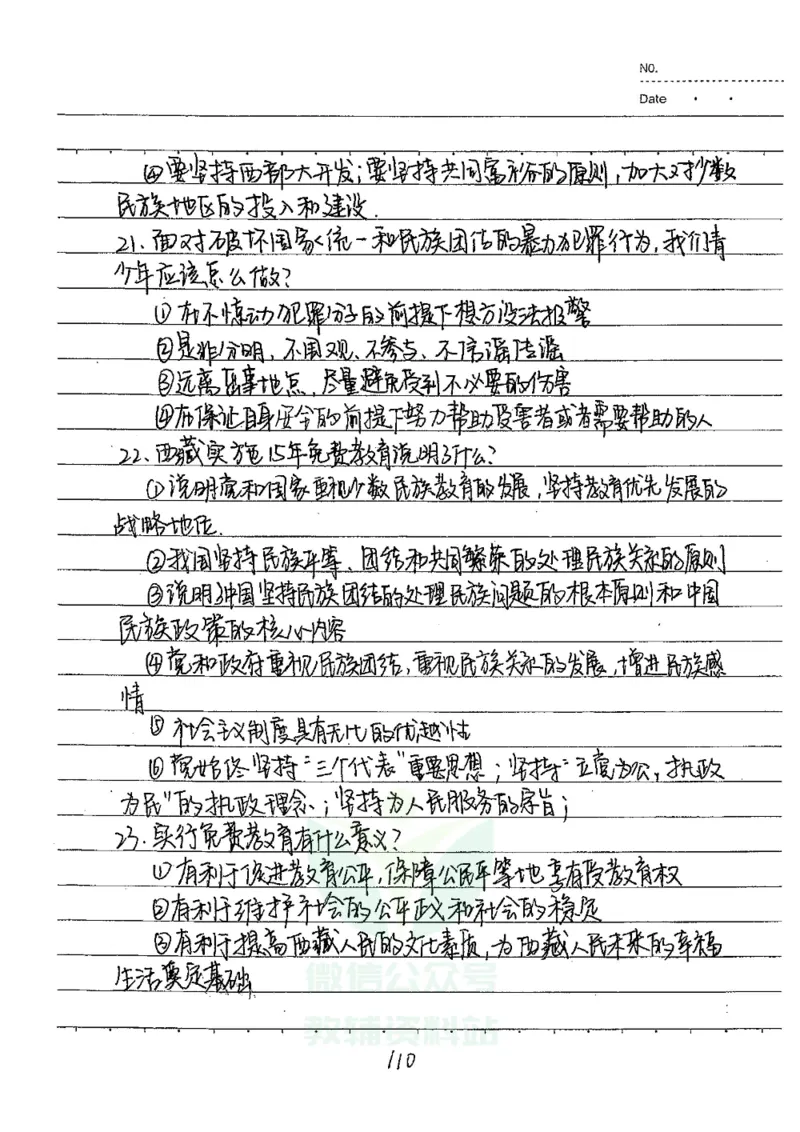 NO.
Date
④要坚持西部大开发;要坚持共同富裕的原则,加大对少数
民族地区的投入和建设.
21.面对破坏国家统一和民族团结的暴力犯罪行为,我们青
少年应该怎么做?
①在不惊动犯罪分子的前提下想方设法报警
②是非分明,不围观、不参与、不信谣传谣
③远离出事地点,尽量避免受到不必要的伤害
④在保证自身安全的前提下努力帮助受害者或者需要帮助的人
22.西藏实施15年免费教育说明了什么?
①说明党和国家重视少数民族教育的发展,坚持教育优先发展的
战略地位.
②我国坚持民族平等、团结和共同繁荣的处理民族关系的原则
③说明了中国坚持民族团结的处理民族问题的根本原则和中国
民族政策的核心内容
④党和政府重视民族团结,重视民族关系的发展,增进民族感
情
⑤社会主义制度具有无比的优越性
⑥党始终坚持“三个代表”重要思想;坚持“立党为公,执政
为民”的执政理念;坚持为人民服务的宗旨;
23.实行免费教育有什么意义?
①有利于促进教育公平,保障公民平等地享有受教育权
②有利于维护社会的公平正义和社会的稳定
③有利于提高西藏人民的文化素质,为西藏人民未来的幸福
生活奠定基础
微信公众号
教辅资料站
110